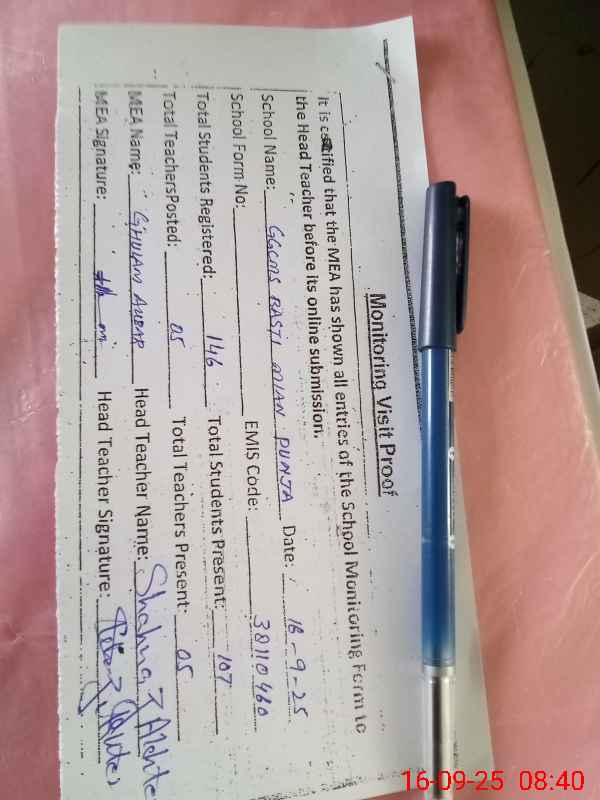 Monitoring Visit Proof
It is certified that the MEA has shown all entries of the School Monitoring Form to
the Head Teacher before its online submission.
School Name: GGCMS BASTI MIAN PUNJA Date: 16-9-25
School Form No: EMIS Code: 38110460
Total Students Registered: 146 Total Students Present: 107
Total TeachersPosted: 05 Total Teachers Present: 05
MEA Name: GHULAM AKBAR Head Teacher Name: Shahnaz Akhter
MEA Signature: Head Teacher Signature:
16-09-25 08:40